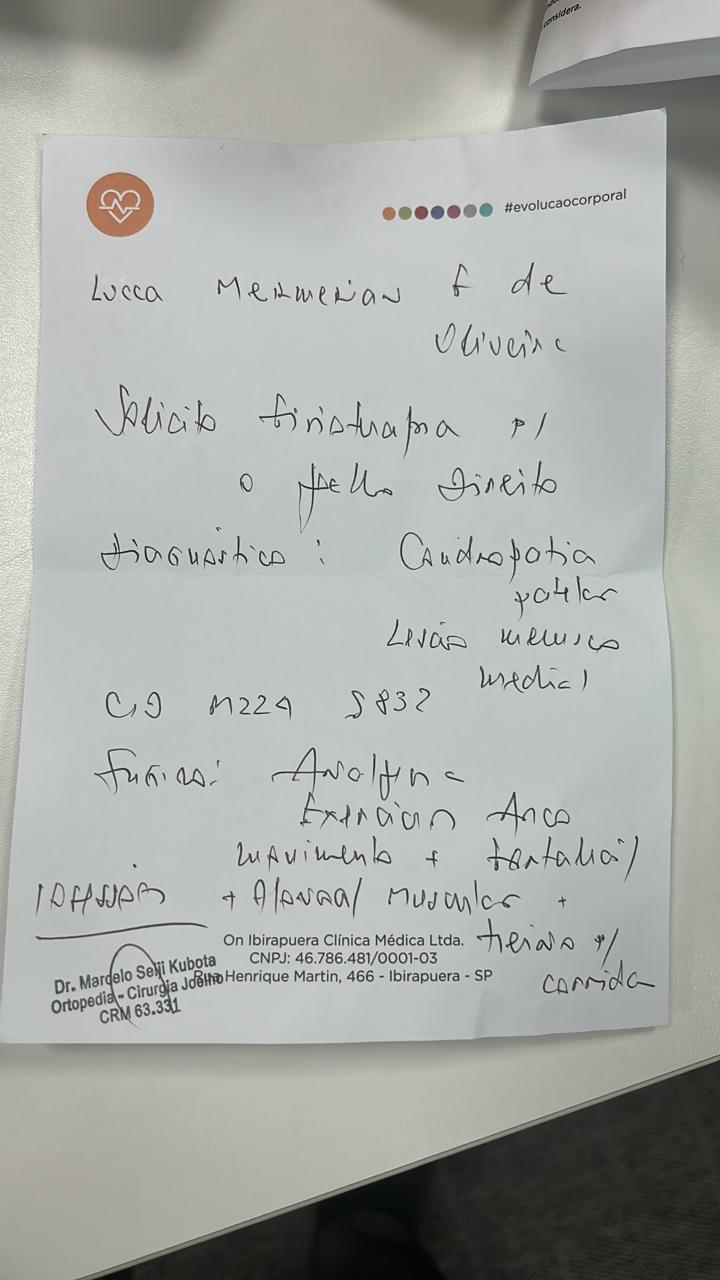 considera.
#evolucaocorporal
Lucca Mermerian F de
Oliveira
Solicito fisioterapia p/
o joelho direito
Diagnóstico: Condropatia
patelar
Lesão menisco
medial
CID M224 S832
Fisica: Analgesia
Exercicios Arco
movimento + fortaleci/
+ Along/ Muscular +
treino p/
corrida
On Ibirapuera Clínica Médica Ltda.
CNPJ: 46.786.481/0001-03
Rua Henrique Martin, 466 - Ibirapuera - SP
Dr. Marcelo Seiji Kubota
Ortopedia - Cirurgia Joelho
CRM 63.331